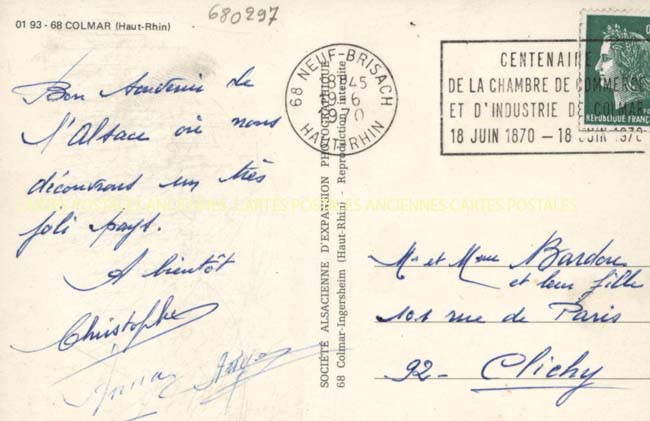 01 93 - 68 COLMAR (Haut-Rhin)
680297
Bon souvenir de
l'Alsace où nous
découvrons un très
joli pays.
A bientôt
Christophe
SOCIÉTÉ ALSACIENNE D'EXPANSION PHOTOGRAPHIQUE
68 Colmar-Ingersheim (Haut-Rhin) - Reproduction interdite
68 NEUF-BRISACH
18H45
1970
HAUT-RHIN
CENTENAIRE
DE LA CHAMBRE DE COMMERCE
ET D'INDUSTRIE DE COLMAR
18 JUIN 1870 — 18 JUIN 1970
REPUBLIQUE FRANÇAISE
CARTES POSTALES ANCIENNES CARTES POSTALES ANCIENNES CARTES POSTALES
Mr et Mme Bardou
et leur fille
101 rue de Paris
92 - Clichy